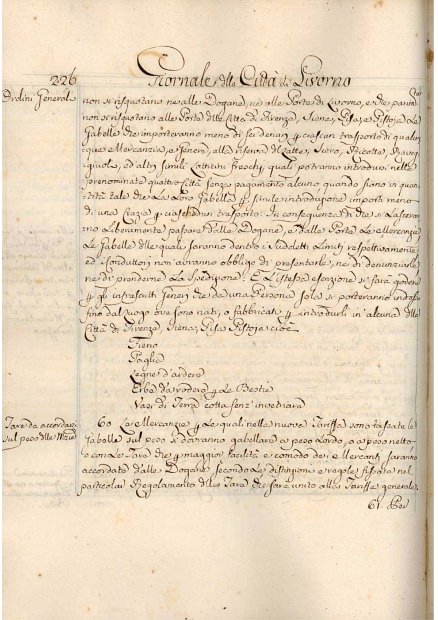 226
Giornale della Città di Livorno
Ordini Generali
non si risquotano ne alle Dogane, ne alle Porte di Livorno, e che parim.
non si risquotano alle Porte delle Città di Firenze, Siena, Pisa, e Pistoja Le
Gabelle che importeranno meno di sei denari p ciascun trasporto di qualun
que Mercanzia, e Generi, alla riserva di Latte, Ricotte, Raveg
gioli, ed altri simili Latticini freschi, quali potranno introdursi nelle
prenominate quattro Città senza pagamento alcuno quando siano in quan
tità tale che La Loro Gabella p simile introduzione importi meno
di una Crazia p ciaschedun trasporto: In conseguenza di che si Lasceran
no Liberamente passare dalle Dogane, e dalle Porte Le Mercanzie
Le Gabelle delle quali saranno dentro i Suddetti Limiti respettivamente
ed i conduttori non avranno obbligo di presentarle, ne di denunziarle
ne di prenderne La Spedizione: E L'istessa esenzione si farà godere
p gli infrascritti Generi che da una Persona sola si porteranno indosso
fino dal luogo ove sono nati, o fabbricati p introdursi in alcuna delle
Città di Firenze, Siena, Pisa Pistoja cioè
Fieno
Paglia
Legne d'ardere
Erbe da rodere p Le Bestie
Vasi di Terra cotta senz' invetriare
Tare da accordarsi
sul peso delle Merzie
60. Le Mercanzie p Le quali nelle nuove Tariffe sono tassate le
Gabelle sul peso si dovranno gabellare a peso Lordo, o a peso netto
con Le Tare che p maggior facilità e comodo dei Mercanti saranno
accordate dalle Dogane secondo Le distinzioni e regole fissate nel
particolar Regolamento delle Tare che sarà unito alle Tariffe generale.
61. Per